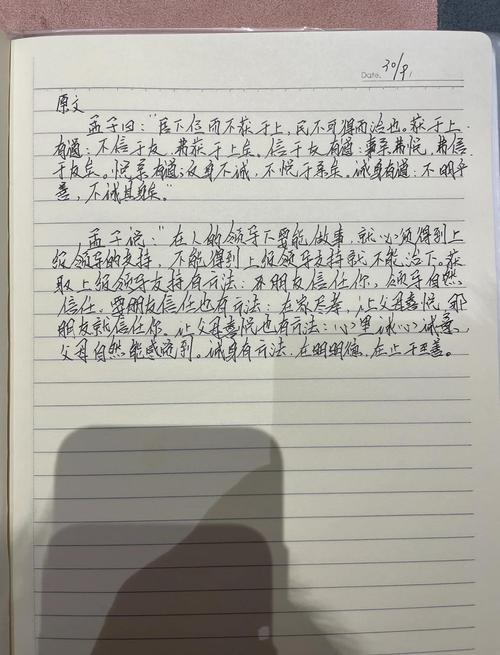 Date. 30/9,
原文
孟子曰："居下位而不获于上，民不可得而治也。获于上
有道：不信于友，弗获于上矣。信于友有道：事亲弗悦，弗信
于友矣。悦亲有道：反身不诚，不悦于亲矣。诚身有道：不明乎
善，不诚其身矣。"
孟子说："在人的领导下要能做事，就必须得到上
级领导的支持，不能得到上级领导支持就不能治下。获
取上级领导支持有方法：朋友信任你，领导自然
信任。要朋友信任也有方法：在家尽孝，让父母喜悦，那
朋友就信任你。让父母喜悦也有方法：心里诚心诚意，
父母自然能感觉到。诚身有方法，在明明德，在止于至善。